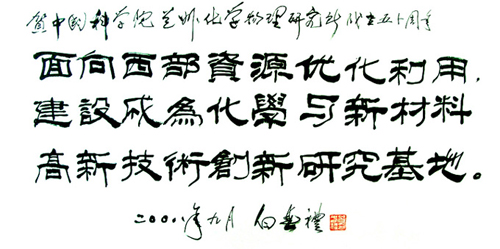 贺中国科学院兰州化学物理研究所成立五十周年
面向西部資源优化利用，
建設成為化學与新材料
高新技術創新研究基地。
二〇〇八年九月 白春禮